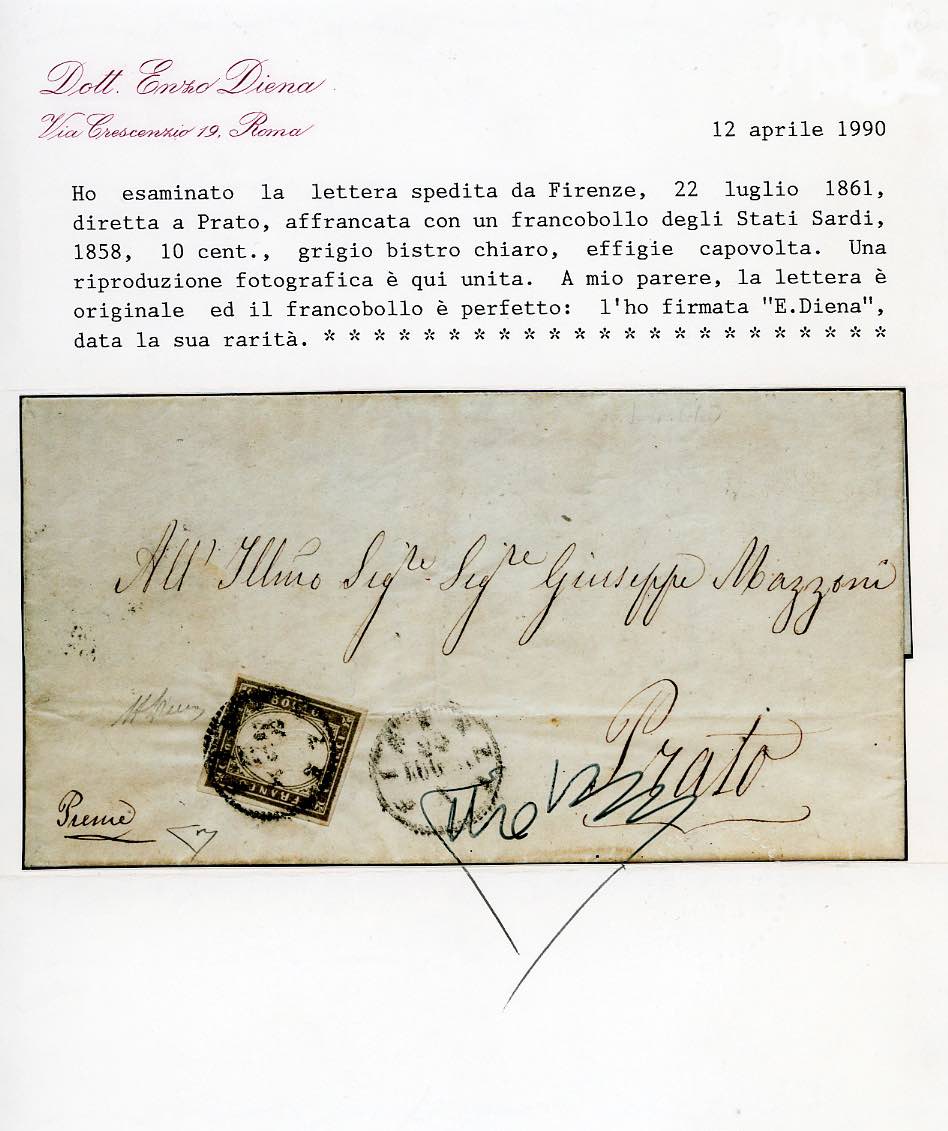 Dott. Enzo Diena
Via Crescenzio 19, Roma
12 aprile 1990
Ho esaminato la lettera spedita da Firenze, 22 luglio 1861,
diretta a Prato, affrancata con un francobollo degli Stati Sardi,
1858, 10 cent., grigio bistro chiaro, effigie capovolta. Una
riproduzione fotografica è qui unita. A mio parere, la lettera è
originale ed il francobollo è perfetto: l'ho firmata "E.Diena",
data la sua rarità. * * * * * * * * * * * * * * * * * * * * * * *
All' Illmo Sigre Sigre Giuseppe Mazzoni
Prato
FRANCO
Preme